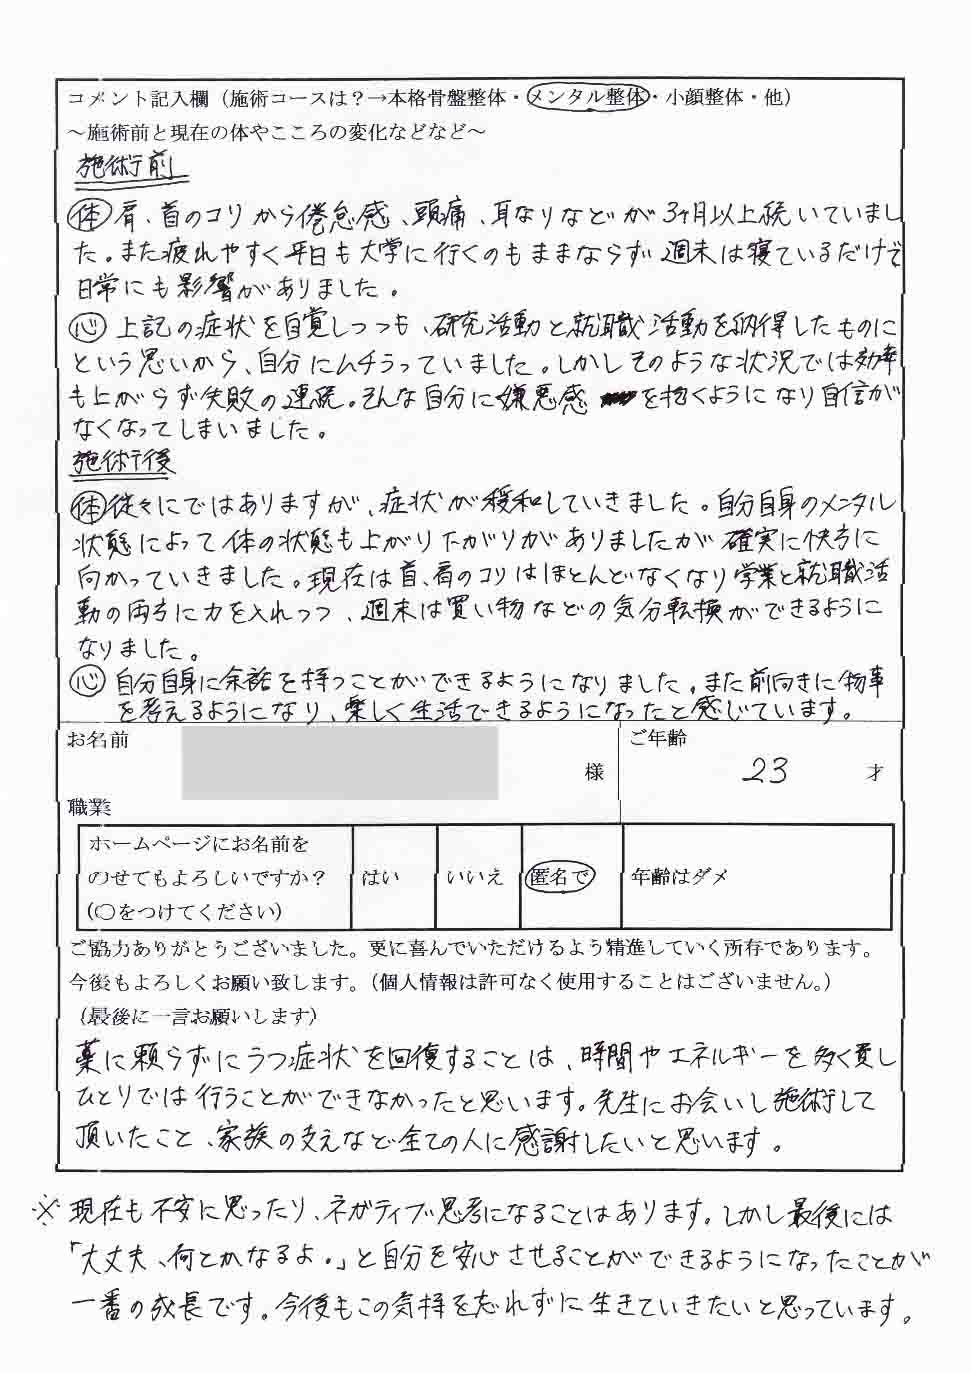 コメント記入欄（施術コースは？→本格骨盤整体・メンタル整体・小顔整体・他）
～施術前と現在の体やこころの変化などなど～
施術前
体 肩、首のコリから倦怠感、頭痛、耳なりなどが3ヶ月以上続いていまし
た。また疲れやすく平日も大学に行くのもままならず週末は寝ているだけで
日常にも影響がありました。
心 上記の症状を自覚しつつも、研究活動と就職活動を納得したものに
という思いから、自分にムチうっていました。しかしそのような状況では効率
も上がらず失敗の連続。そんな自分に嫌悪感 を抱くようになり自信が
なくなってしまいました。
施術後
体 徐々にではありますが、症状が緩和していきました。自分自身のメンタル
状態によって体の状態も上がり下がりがありましたが確実に快方に
向かっていきました。現在は首、肩のコリはほとんどなくなり学業と就職活
動の両方に力を入れつつ、週末は買い物などの気分転換ができるように
なりました。
心 自分自身に余裕を持つことができるようになりました。また前向きに物事
を考えるようになり、楽しく生活できるようになったと感じています。
お名前 様 ご年齢 23 才
職業
ホームページにお名前を
のせてもよろしいですか？ はい いいえ 匿名で 年齢はダメ
（〇をつけてください）
ご協力ありがとうございました。更に喜んでいただけるよう精進していく所存であります。
今後もよろしくお願い致します。（個人情報は許可なく使用することはございません。）
（最後に一言お願いします）
薬に頼らずにうつ症状を回復することは、時間やエネルギーを多く費し
ひとりでは行うことができなかったと思います。先生にお会いし施術して
頂いたこと、家族の支えなど全ての人に感謝したいと思います。
※ 現在も不安に思ったり、ネガティブ思考になることはあります。しかし最後には
「大丈夫、何とかなるよ。」と自分を安心させることができるようになったことが
一番の成長です。今後もこの気持を忘れずに生きていきたいと思っています。